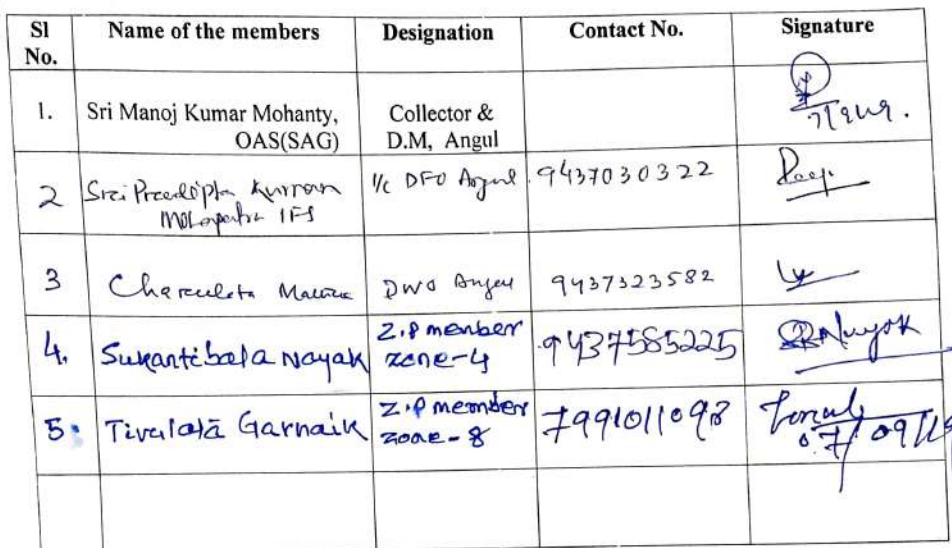 Sl No. Name of the members Designation Contact No. Signature
1. Sri Manoj Kumar Mohanty, OAS(SAG) Collector & D.M, Angul
2 Kumar IFS I/c DFO Angul 9437030322
3 Charulata DWO Angul 9437323582
4. Sukantibala Nayak Z.P member zone-4 9437585225 Nayak
5. Garnaik Z.P member zone-8 7991011098